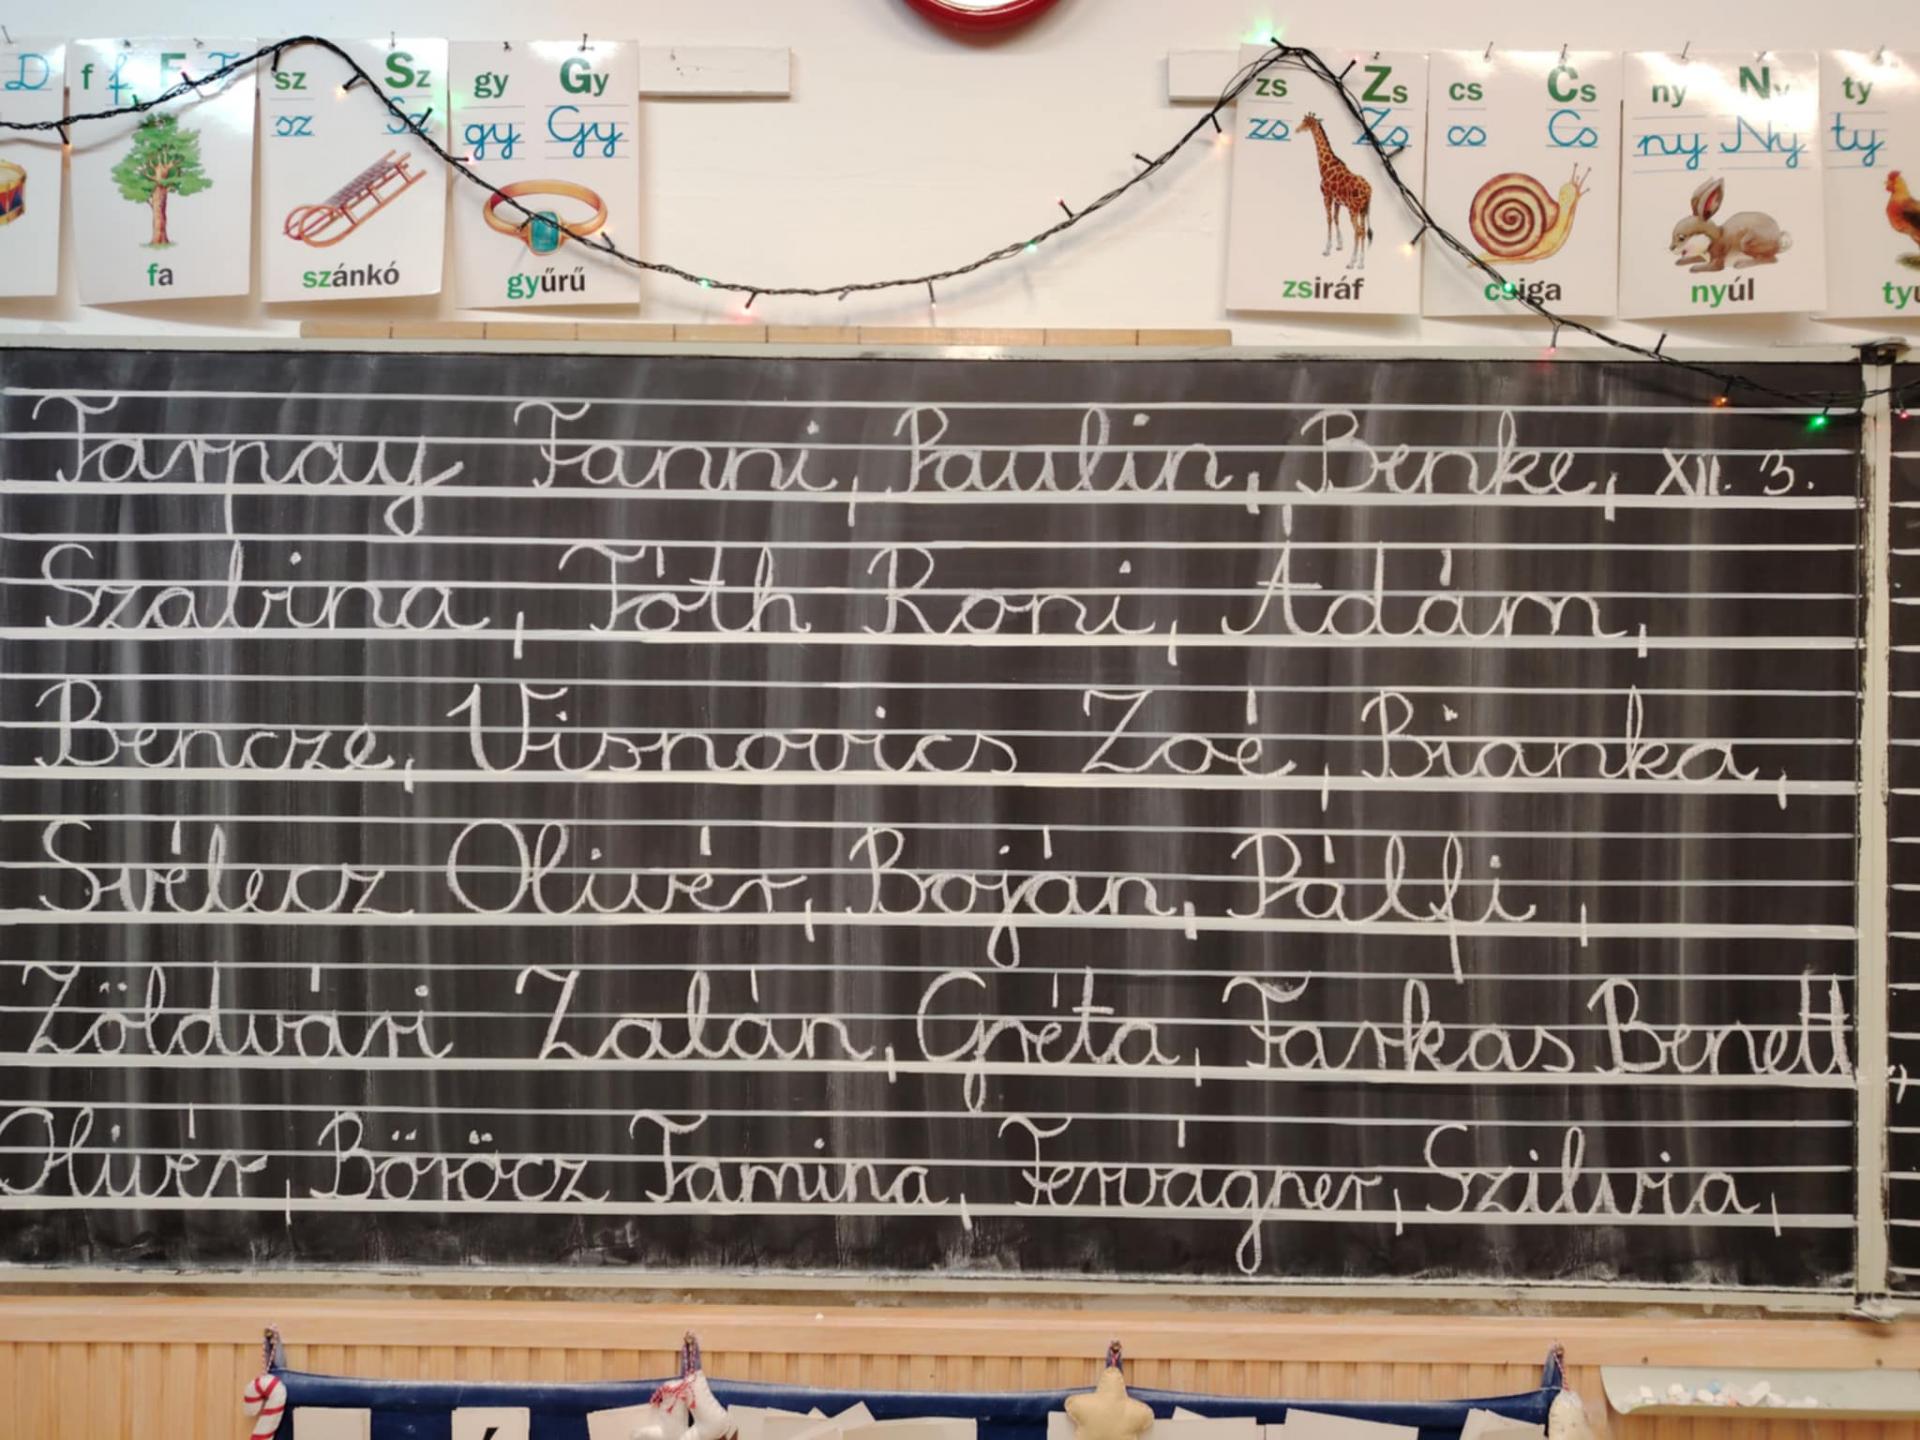 D f f F F sz Sz gy Gy zs Zs cs Cs ny Ny ty
sz Sz gy Gy zs Zs cs Cs ny Ny ty
fa szánkó gyűrű zsiráf csiga nyúl
Tarpay Fanni, Paulin, Benke, XII. 3.
Szabina, Tóth Roni, Ádám,
Bencze, Visnovics Zoé, Bianka,
Svélecz Olivér, Boján, Pálfi,
Zöldvári Zalán, Gréta, Farkas Benett,
Olivér, Böröcz Tamina, Fervágner, Szilvia,